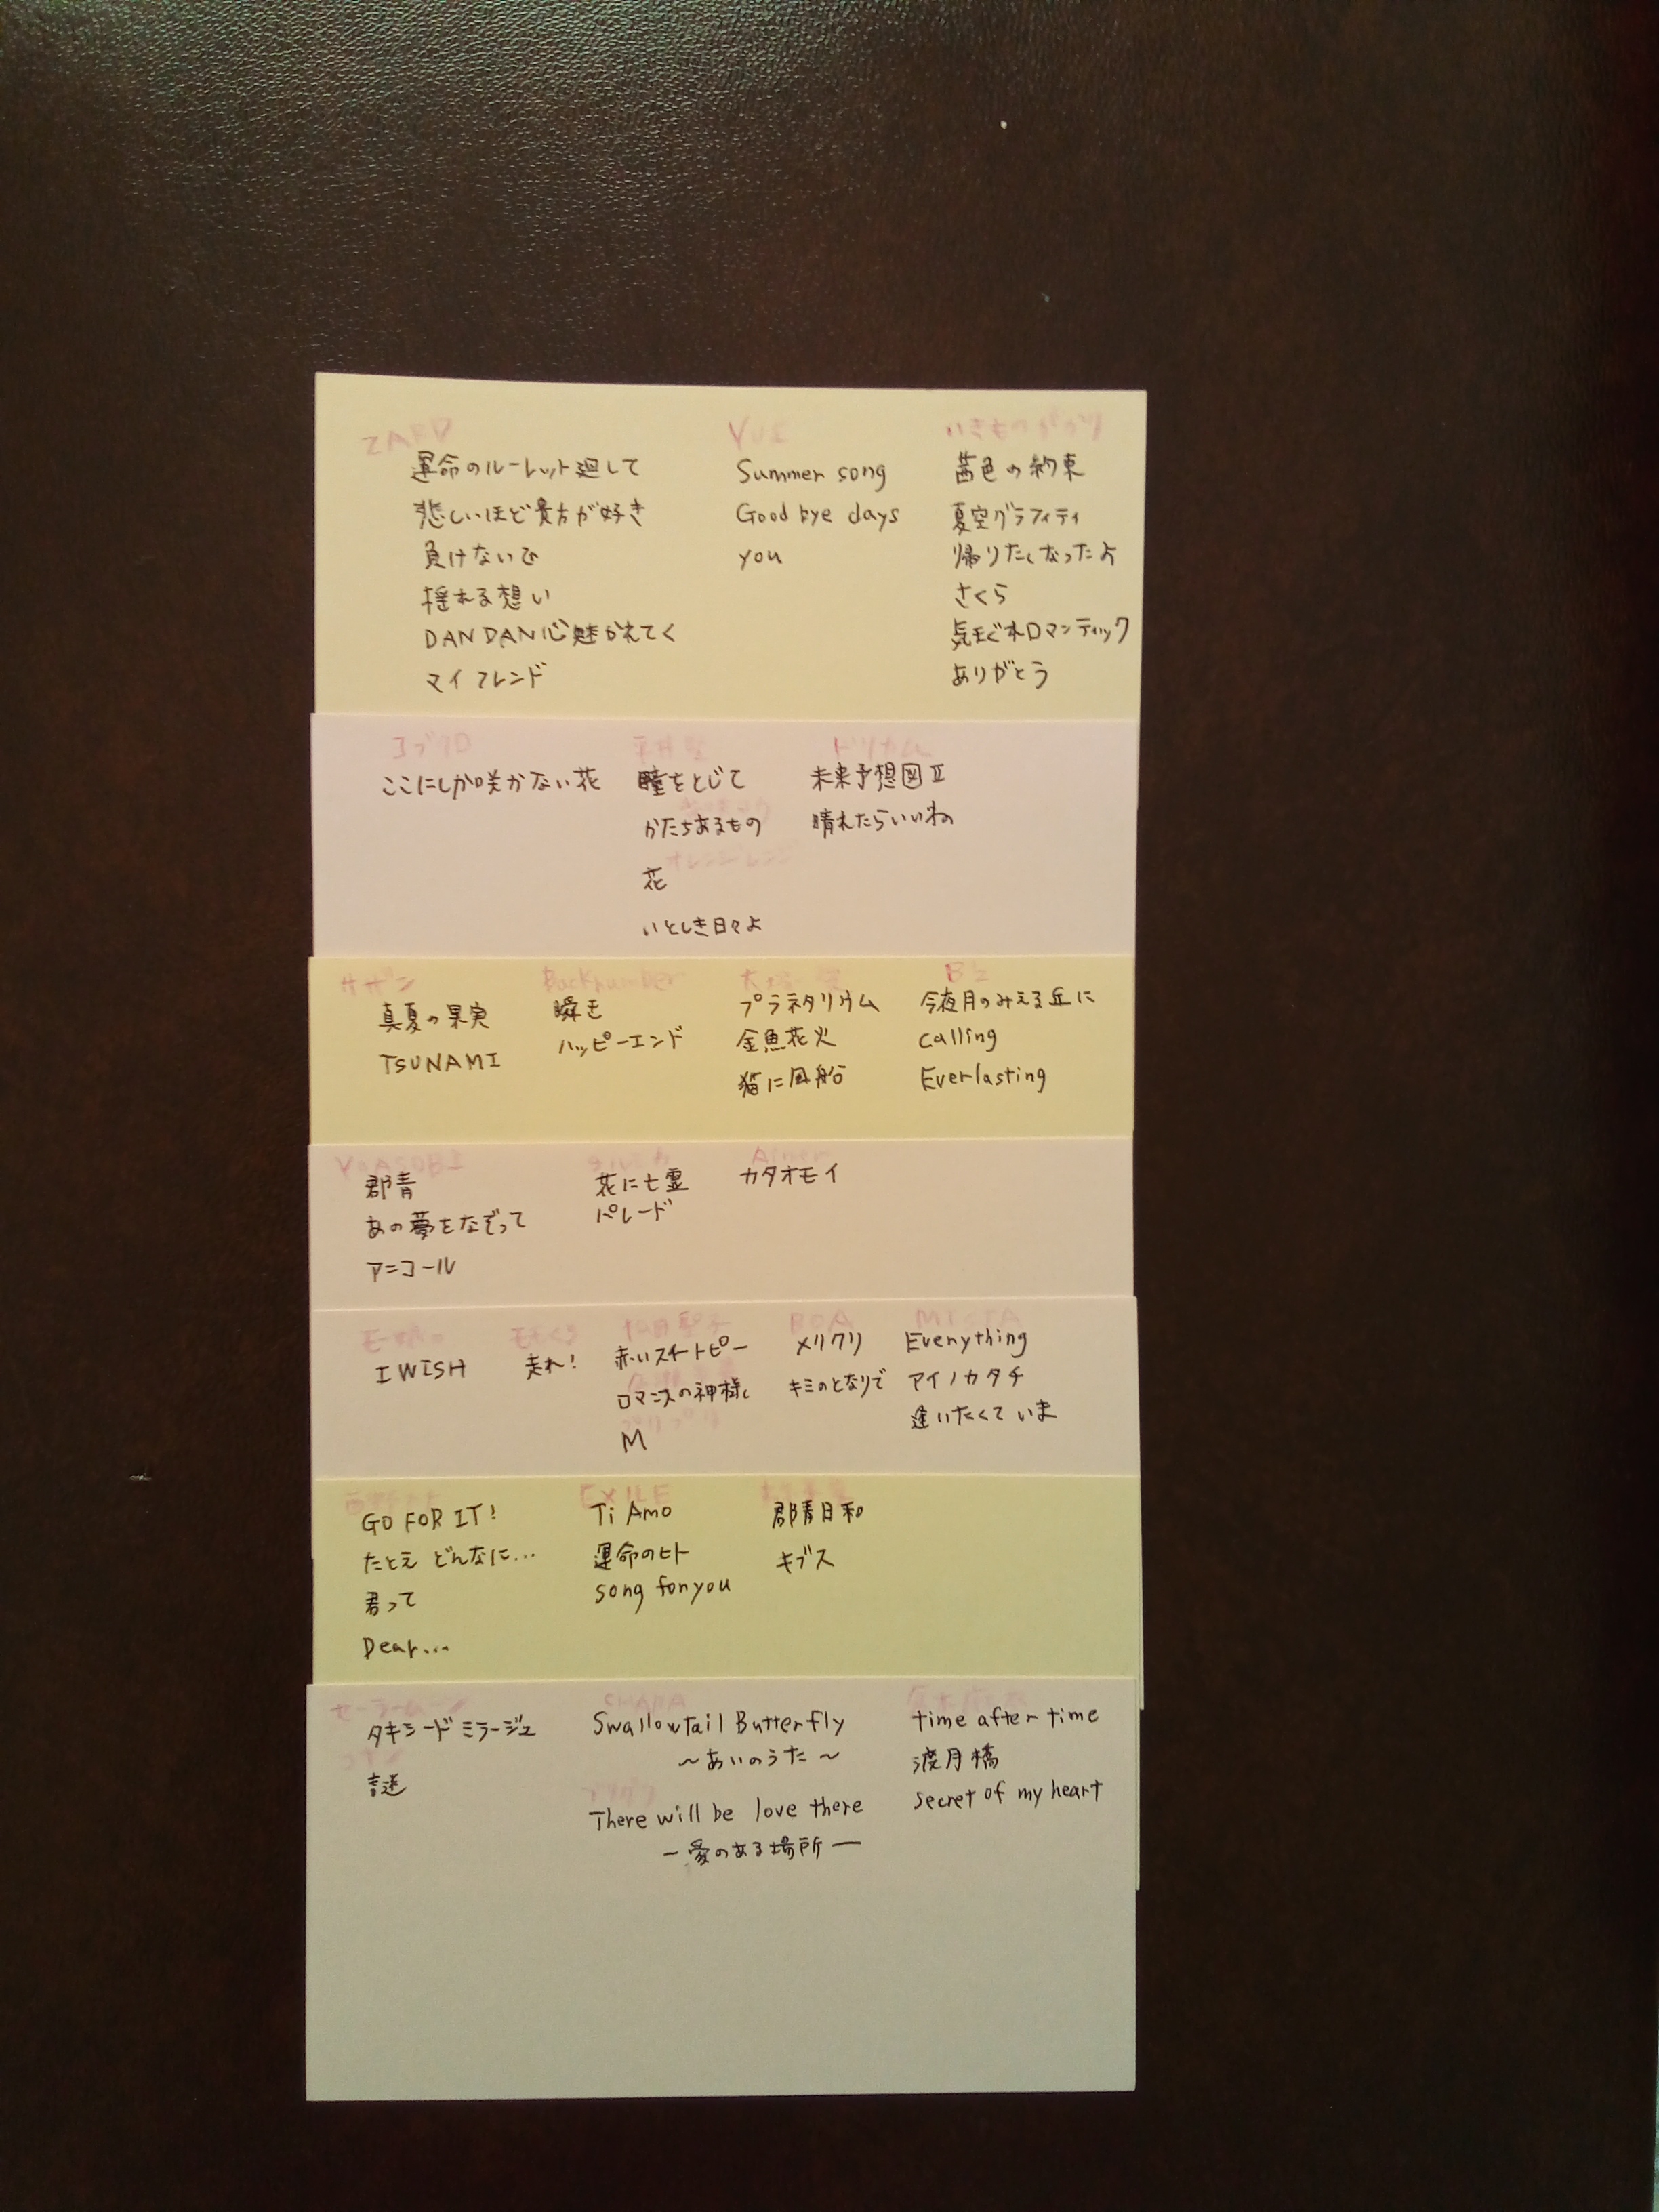 ZARD
運命のルーレット廻して
悲しいほど貴方が好き
負けないで
揺れる想い
DAN DAN 心魅かれてく
マイ フレンド
YUI
Summer song
Good bye days
you
いきものがかり
茜色の約束
夏空グラフィティ
帰りたくなったよ
さくら
気まぐれロマンティック
ありがとう
コブクロ
ここにしか咲かない花
平井堅
瞳をとじて
かたちあるもの
オレンジレンジ
花
いとしき日々よ
ドリカム
未来予想図Ⅱ
晴れたらいいね
サザン
真夏の果実
TSUNAMI
Backnumber
瞬き
ハッピーエンド
大塚 愛
プラネタリウム
金魚花火
猫に風船
B'z
今夜月のみえる丘に
calling
Everlasting
YOASOBI
郡青
あの夢をなぞって
アンコール
ヨルシカ
花に亡霊
パレード
Aimer
カタオモイ
モー娘。
I WISH
ももくろ
走れ!
松田聖子
赤いスイートピー
ロマンスの神様
プリプリ
M
BOA
メリクリ
キミのとなりで
MISIA
Everything
アイノカタチ
逢いたくていま
西野カナ
GO FOR IT!
たとえ どんなに…
君って
Dear…
EXILE
Ti Amo
運命のヒト
song for you
郡青日和
キブス
セーラームーン
タキシードミラージュ
コナン
謎
CHARA
Swallowtail Butterfly
～あいのうた～
ブリグリ
There will be love there
ー愛のある場所ー
倉木麻衣
time after time
渡月橋
secret of my heart